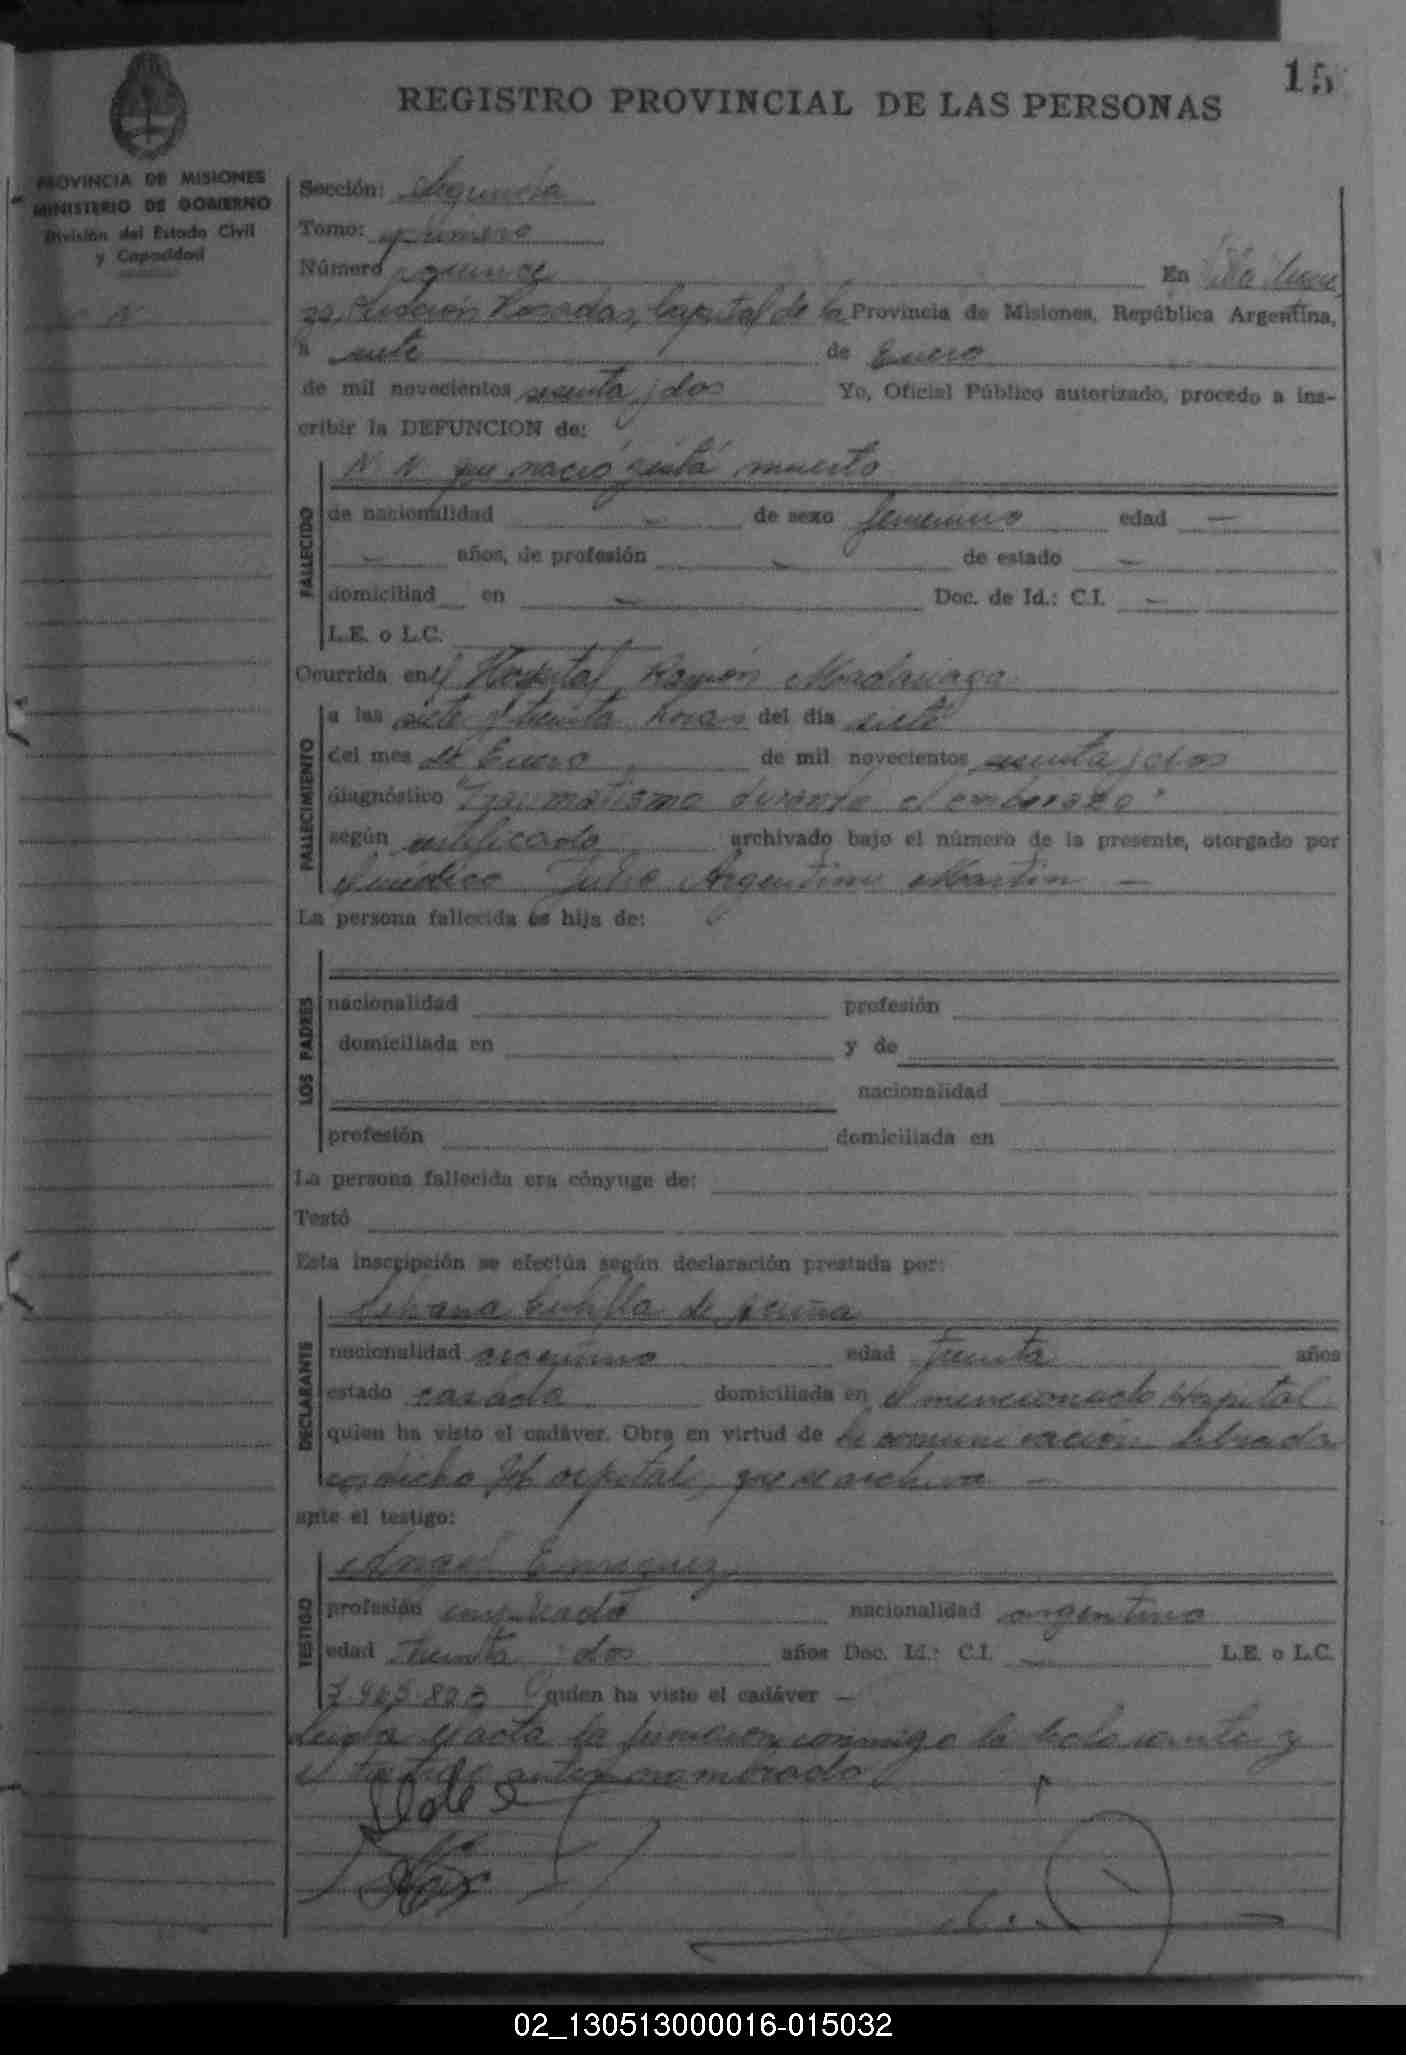 15
REGISTRO PROVINCIAL DE LAS PERSONAS
PROVINCIA DE MISIONES
MINISTERIO DE GOBIERNO
División del Estado Civil
y Capacidad
N N
Sección: Segunda
Tomo: primero
Número quince En Villa
Posadas, Capital de la Provincia de Misiones, República Argentina,
a siete de Enero
de mil novecientos sesenta y dos Yo, Oficial Público autorizado, procedo a ins-
cribir la DEFUNCION de:
N. N. que nació muerto
FALLECIDO
de nacionalidad - de sexo femenino edad -
- años, de profesión - de estado -
domiciliad en - Doc. de Id.: C.I. -
L.E. o L.C.
Ocurrida en el Hospital Ramón Madariaga
FALLECIMIENTO
a las siete y treinta horas del día siete
del mes de Enero de mil novecientos sesenta y dos
diagnóstico "Traumatismo durante el embarazo"
según certificado archivado bajo el número de la presente, otorgado por
el médico Julio Argentino Martin -
La persona fallecida es hija de:
LOS PADRES
nacionalidad profesión
domiciliada en y de
nacionalidad
profesión domiciliada en
La persona fallecida era cónyuge de:
Testó
Esta inscripción se efectúa según declaración prestada por:
DECLARANTE
de Acuña
nacionalidad argentina edad treinta años
estado casada domiciliada en el mencionado Hospital
quien ha visto el cadáver. Obra en virtud de la comunicación librada
por dicho Hospital, que se archiva -
ante el testigo:
TESTIGO
Angel Enriquez
profesión empleado nacionalidad argentino
edad treinta dos años Doc. Id.: C.I. - L.E. o L.C.
7.965.823 quien ha visto el cadáver -
Leída el acta la firmaron conmigo la declarante y
el testigo antes nombrado
02_130513000016-015032